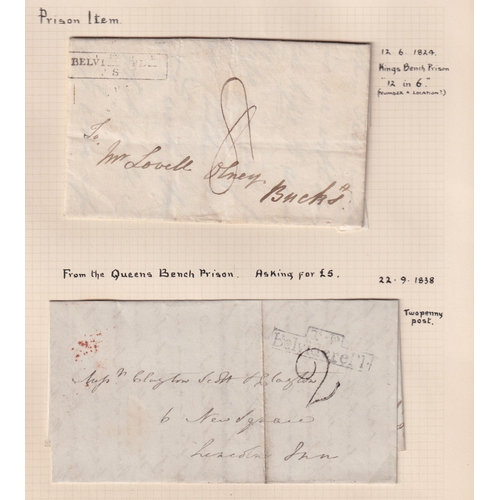 Prison Item.
12. 6. 1824.
Kings Bench Prison
"12 in 6"
(number + location?)
BELV
8
8
To
Mr Lovell Olney
Bucks
From the Queens Bench Prison. Asking for £5.
22. 9. 1838
Twopenny
post.
Belvedere Pl
2
Clayton Scott & Clayton
6 New Square
Lincolns Inn